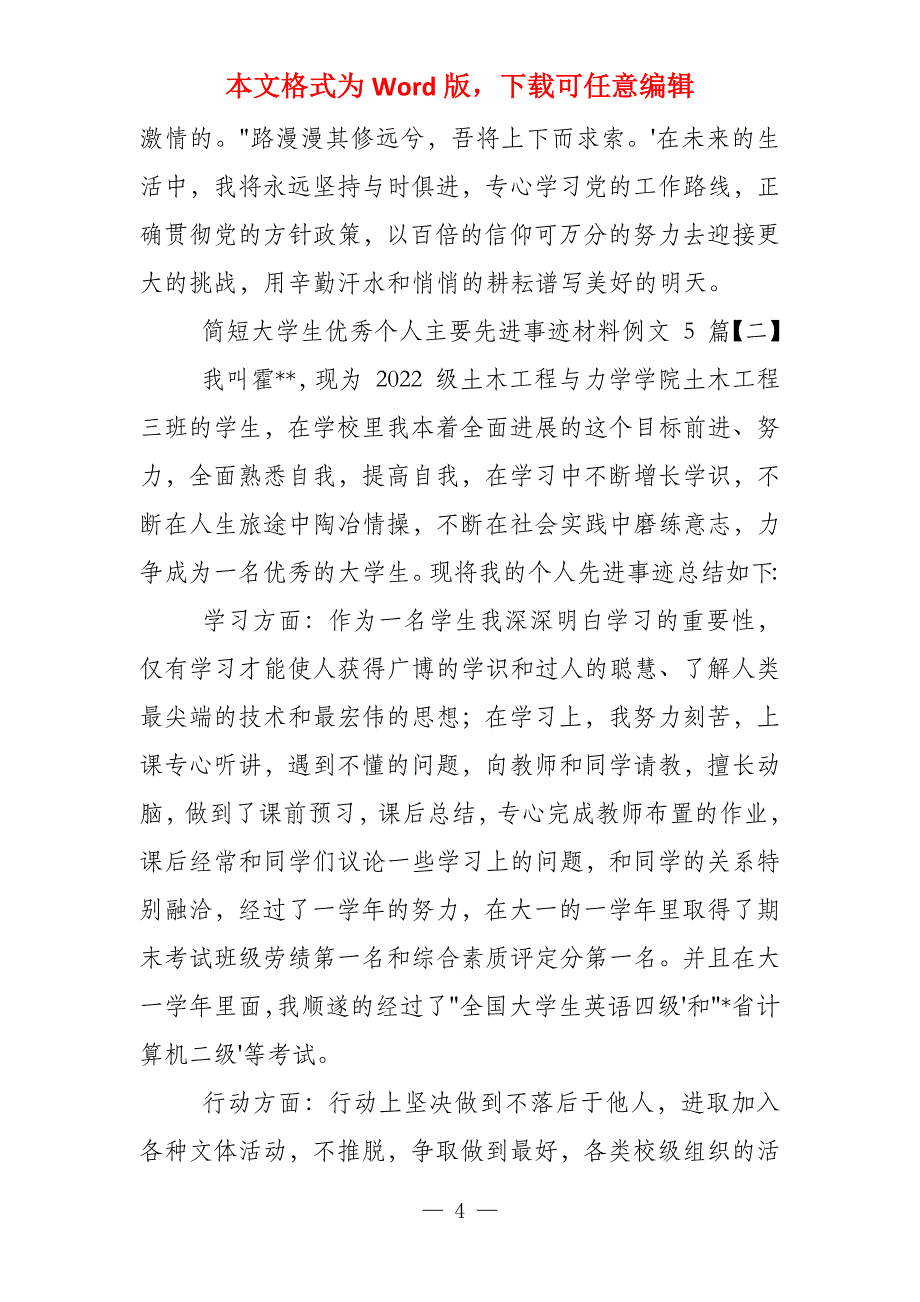 本文格式为 Word 版，下载可任意编辑
激情的。"路漫漫其修远兮，吾将上下而求索。'在未来的生
活中，我将永远坚持与时俱进，专心学习党的工作路线，正
确贯彻党的方针政策，以百倍的信仰可万分的努力去迎接更
大的挑战，用辛勤汗水和悄悄的耕耘谱写美好的明天。
简短大学生优秀个人主要先进事迹材料例文 5 篇【二】
我叫霍**，现为 2022 级土木工程与力学学院土木工程
三班的学生，在学校里我本着全面进展的这个目标前进、努
力，全面熟悉自我，提高自我，在学习中不断增长学识，不
断在人生旅途中陶冶情操，不断在社会实践中磨练意志，力
争成为一名优秀的大学生。现将我的个人先进事迹总结如下:
学习方面：作为一名学生我深深明白学习的重要性，
仅有学习才能使人获得广博的学识和过人的聪慧、了解人类
最尖端的技术和最宏伟的思想；在学习上，我努力刻苦，上
课专心听讲，遇到不懂的问题，向教师和同学请教，擅长动
脑，做到了课前预习，课后总结，专心完成教师布置的作业，
课后经常和同学们议论一些学习上的问题，和同学的关系特
别融洽，经过了一学年的努力，在大一的一学年里取得了期
末考试班级劳绩第一名和综合素质评定分第一名。并且在大
一学年里面，我顺遂的经过了"全国大学生英语四级'和"*省计
算机二级'等考试。
行动方面：行动上坚决做到不落后于他人，进取加入
各种文体活动，不推脱，争取做到最好，各类校级组织的活
— 4 —